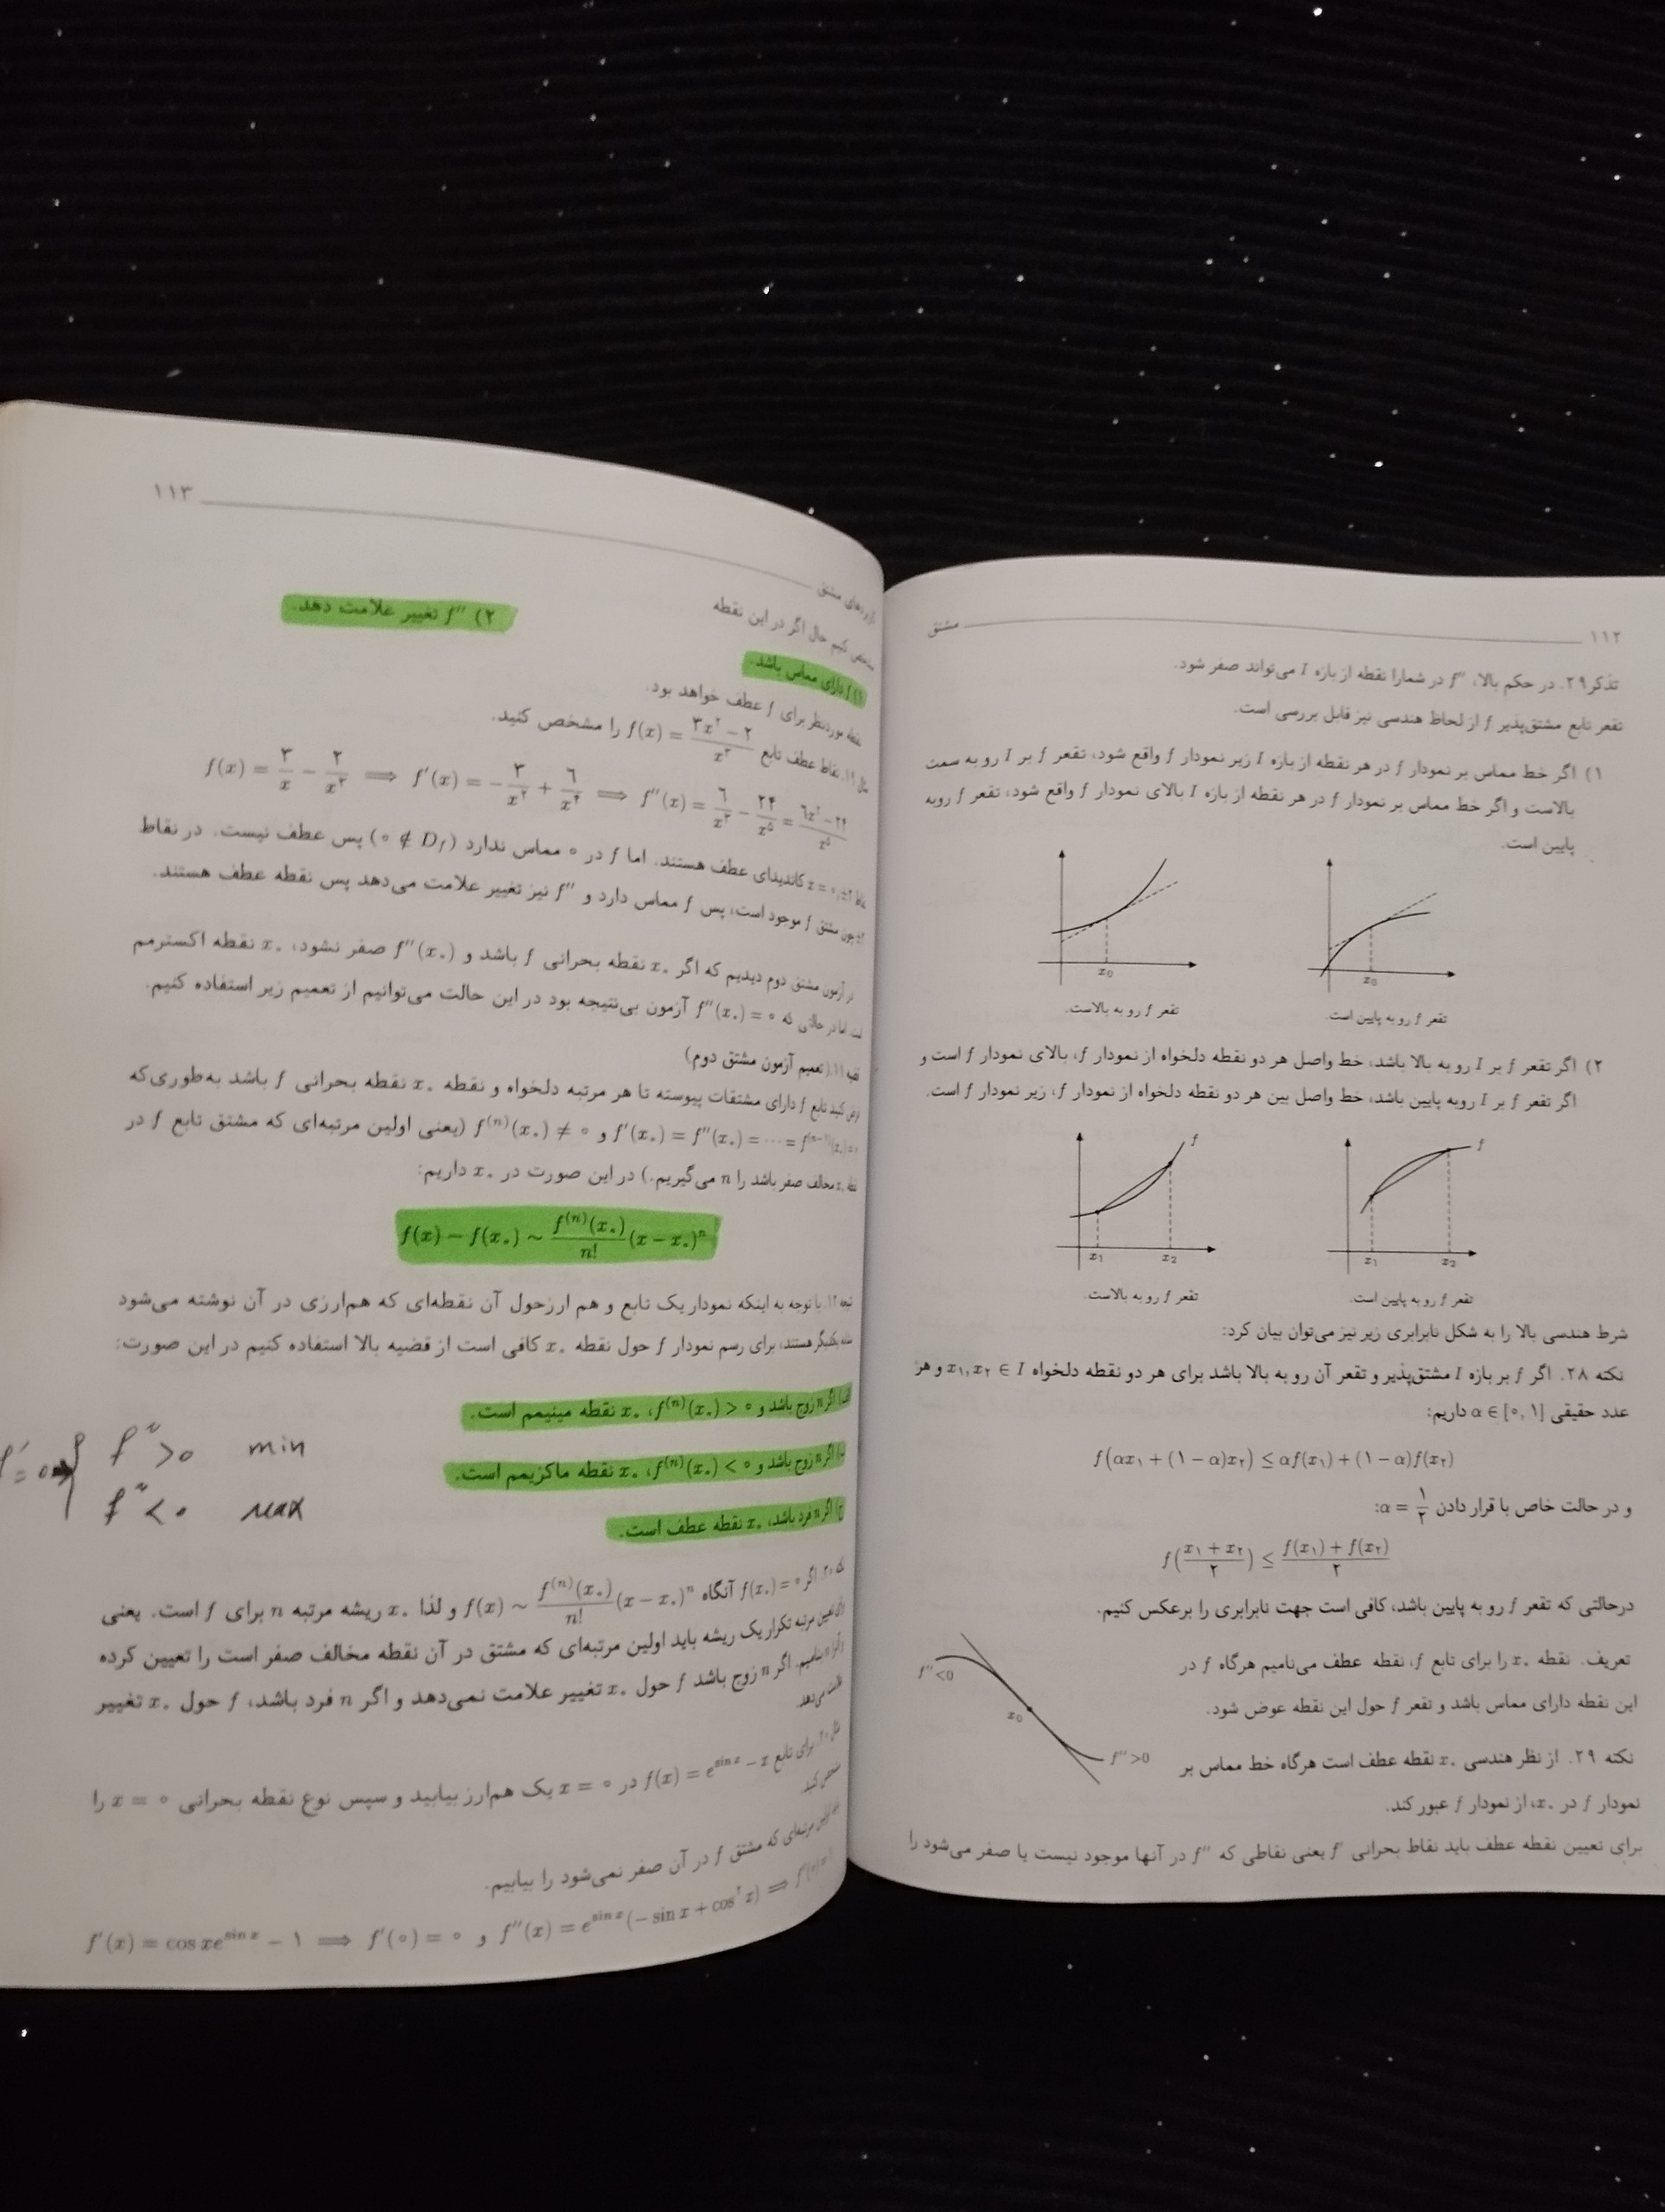 ۱۱۲ مشتق
تذکر ۲۹. در حکم بالا، f″ در شمارا نقطه از بازه I می‌تواند صفر شود.
تقعر تابع مشتق‌پذیر f از لحاظ هندسی نیز قابل بررسی است.
۱) اگر خط مماس بر نمودار f در هر نقطه از بازه I زیر نمودار f واقع شود، تقعر f بر I رو به سمت
بالاست و اگر خط مماس بر نمودار f در هر نقطه از بازه I بالای نمودار f واقع شود، تقعر f روبه
پایین است.
x₀ x₀
تقعر f رو به پایین است. تقعر f رو به بالاست.
۲) اگر تقعر f بر I رو به بالا باشد، خط واصل هر دو نقطه دلخواه از نمودار f، بالای نمودار f است و
اگر تقعر f بر I روبه پایین باشد، خط واصل بین هر دو نقطه دلخواه از نمودار f، زیر نمودار f است.
f f
x₁ x₂ x₁ x₂
تقعر f رو به پایین است. تقعر f رو به بالاست.
شرط هندسی بالا را به شکل نابرابری زیر نیز می‌توان بیان کرد:
نکته ۲۸. اگر f بر بازه I مشتق‌پذیر و تقعر آن رو به بالا باشد برای هر دو نقطه دلخواه x₁, x₂ ∈ I و هر
عدد حقیقی α ∈ [۰, ۱] داریم:
f(αx₁ + (۱ − α)x₂) ≤ αf(x₁) + (۱ − α)f(x₂)
و در حالت خاص با قرار دادن α = ۱/۲:
f((x₁ + x₂)/۲) ≤ (f(x₁) + f(x₂))/۲
درحالتی که تقعر f رو به پایین باشد، کافی است جهت نابرابری را برعکس کنیم.
تعریف. نقطه x₀ را برای تابع f، نقطه عطف می‌نامیم هرگاه f در
این نقطه دارای مماس باشد و تقعر f حول این نقطه عوض شود.
f″<0
x₀
f″>0
نکته ۲۹. از نظر هندسی x₀ نقطه عطف است هرگاه خط مماس بر
نمودار f در x₀، از نمودار f عبور کند.
برای تعیین نقطه عطف باید نقاط بحرانی f′ یعنی نقاطی که f″ در آنها موجود نیست یا صفر می‌شود را
کاربردهای مشتق ۱۱۳
مشخص کنیم حال اگر در این نقطه
۱) f دارای مماس باشد. ۲) f″ تغییر علامت دهد.
نقطه موردنظر برای f عطف خواهد بود.
مثال ۱۹. نقاط عطف تابع f(x) = (۳x² − ۲)/x³ را مشخص کنید.
f(x) = ۳/x − ۲/x³ ⟹ f′(x) = −۳/x² + ۶/x⁴ ⟹ f″(x) = ۶/x³ − ۲۴/x⁵ = (۶x² − ۲۴)/x⁵
نقاط x = ۰, ±۲ کاندیدای عطف هستند. اما f در ۰ مماس ندارد (۰ ∉ D_f) پس عطف نیست. در نقاط
±۲ چون مشتق f موجود است، پس f مماس دارد و f″ نیز تغییر علامت می‌دهد پس نقطه عطف هستند.
در آزمون مشتق دوم دیدیم که اگر x₀ نقطه بحرانی f باشد و f″(x₀) صفر نشود، x₀ نقطه اکسترمم
است اما در حالتی که f″(x₀) = ۰ آزمون بی‌نتیجه بود در این حالت می‌توانیم از تعمیم زیر استفاده کنیم.
قضیه ۱۱. (تعمیم آزمون مشتق دوم)
فرض کنید تابع f دارای مشتقات پیوسته تا هر مرتبه دلخواه و نقطه x₀ نقطه بحرانی f باشد به‌طوری‌که
f′(x₀) = f″(x₀) = ⋯ = f⁽ⁿ⁻¹⁾(x₀) = ۰ و f⁽ⁿ⁾(x₀) ≠ ۰ (یعنی اولین مرتبه‌ای که مشتق تابع f در
نقطه x₀ مخالف صفر باشد را n می‌گیریم.) در این صورت در x₀ داریم:
f(x) − f(x₀) ∼ f⁽ⁿ⁾(x₀)/n! (x − x₀)ⁿ
نتیجه ۱۲. با توجه به اینکه نمودار یک تابع و هم ارزحول آن نقطه‌ای که هم‌ارزی در آن نوشته می‌شود
مشابه یکدیگر هستند، برای رسم نمودار f حول نقطه x₀ کافی است از قضیه بالا استفاده کنیم در این صورت:
الف) اگر n زوج باشد و f⁽ⁿ⁾(x₀) > ۰، x₀ نقطه مینیمم است.
ب) اگر n زوج باشد و f⁽ⁿ⁾(x₀) < ۰، x₀ نقطه ماکزیمم است.
ج) اگر n فرد باشد، x₀ نقطه عطف است.
f′=0 → { f″>0 min
f″<0 max
نکته ۳۰. اگر f(x₀) = ۰ آنگاه f(x) ∼ f⁽ⁿ⁾(x₀)/n! (x − x₀)ⁿ و لذا x₀ ریشه مرتبه n برای f است. یعنی
برای تعیین مرتبه تکرار یک ریشه باید اولین مرتبه‌ای که مشتق در آن نقطه مخالف صفر است را تعیین کرده
و آنرا n بنامیم. اگر n زوج باشد f حول x₀ تغییر علامت نمی‌دهد و اگر n فرد باشد، f حول x₀ تغییر
علامت می‌دهد.
مثال ۲۰. برای تابع f(x) = e^{sin x} − x در x = ۰ یک هم‌ارز بیابید و سپس نوع نقطه بحرانی x = ۰ را
مشخص کنید.
مرتبه‌ای که مشتق f در آن صفر نمی‌شود را بیابیم.
f′(x) = cos x e^{sin x} − ۱ ⟹ f′(۰) = ۰ و f″(x) = e^{sin x}(− sin x + cos² x) ⟹